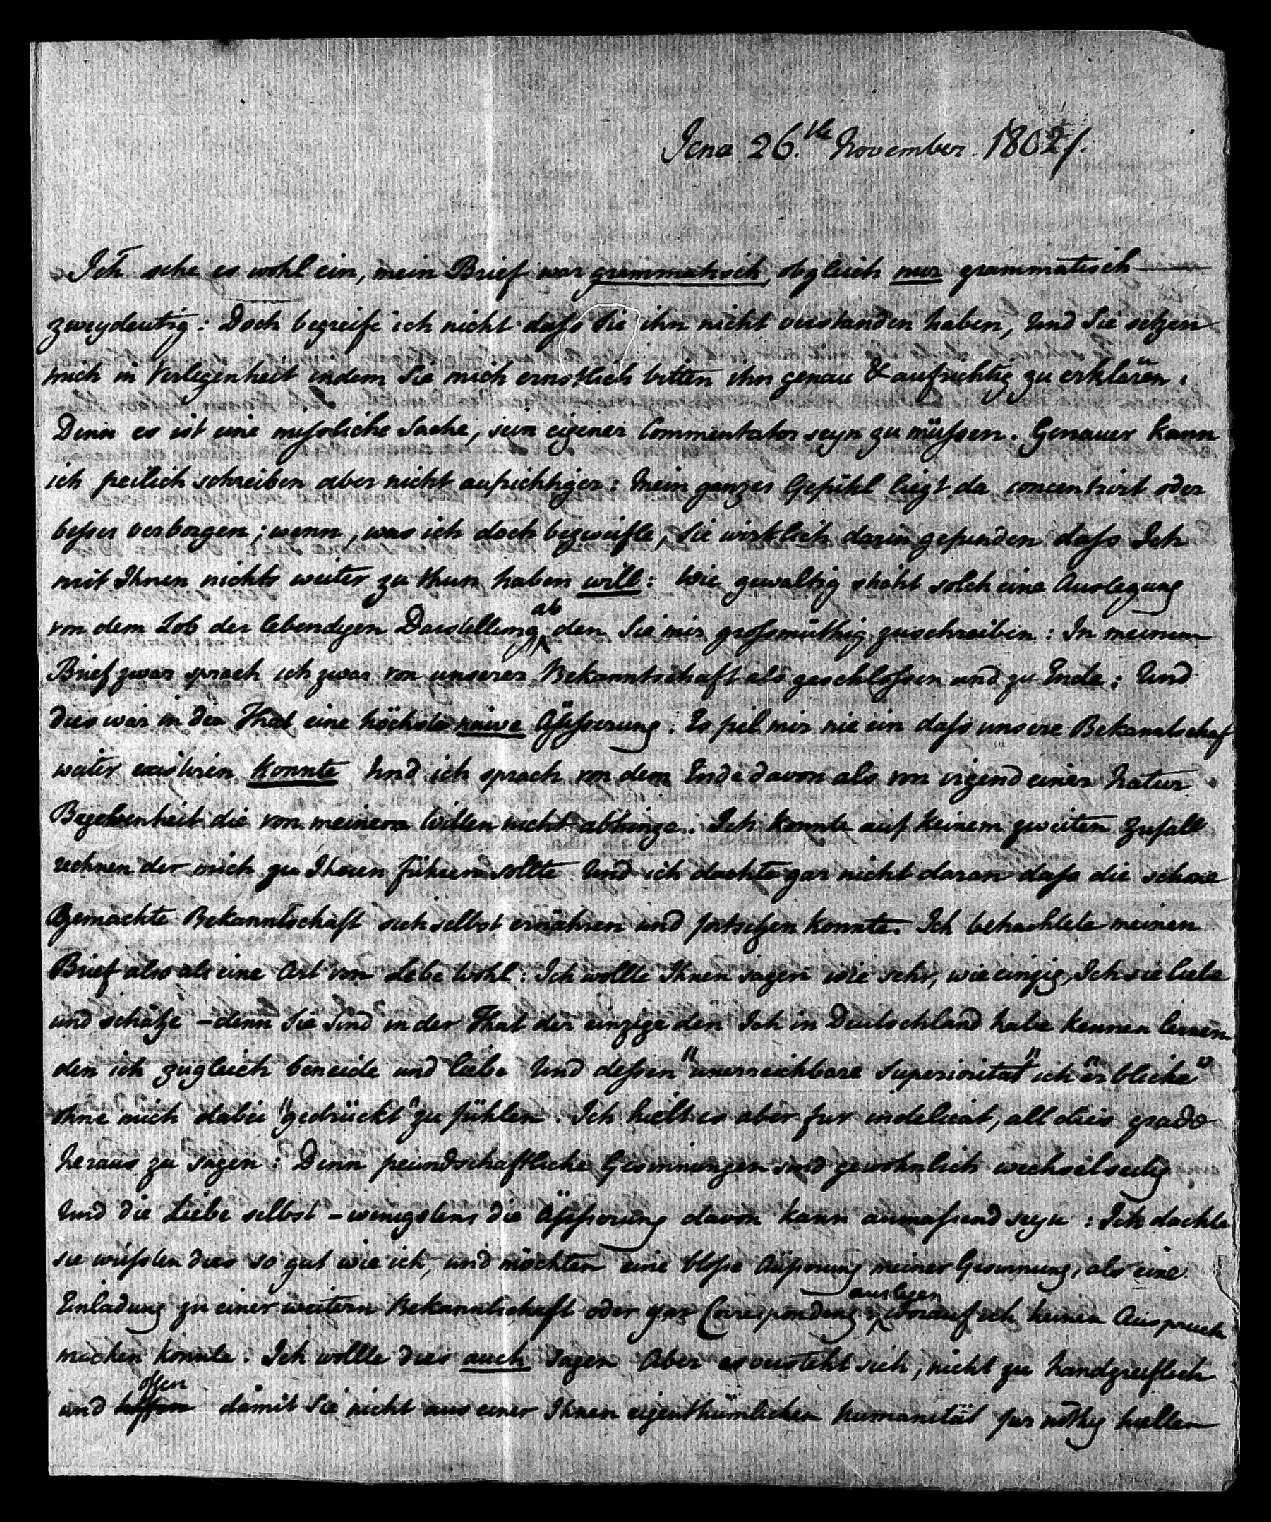 Jena 26.ste November. 1802/.
Ich sehe es wohl ein, mein Brief war grammatisch, obgleich nur grammatisch
zweydeutig: Doch begreife ich nicht dass Sie ihn nicht verstanden haben, Und Sie setzen
mich in Verlegenheit indem Sie mich ernstlich bitten ihn genau & aufrichtig zu erklären.
Denn es ist eine missliche Sache, sein eigener Commentator seyn zu müssen. Genauer kann
ich freilich schreiben aber nicht aufrichtiger: Mein ganzes Gefühl liegt da concentrirt oder
besser verborgen; wenn, was ich doch bezweifle, Sie wirklich darin gefunden dass Ich
mit Ihnen nichts weiter zu thun haben will: Wie gewaltig sticht solch eine Auslegung
von dem Lob der lebendigen Darstellung ab den Sie mir grossmüthig zuschreiben: In meinem
Brief zwar sprach ich zwar von unserer Bekanntschaft als geschlossen und zu Ende; Und
dies war in der That eine höchste naive Äüsserung: Es fiel mir nie ein dass unsere Bekanntschaf
weiter existiren konnte Und ich sprach von dem Ende davon als von irgend einer Natur
Begebenheit die von meinem Willen nicht abhinge. Ich konnte auf keinem zweiten Zufall
rechnen der mich zu Ihnen führen sollte Und ich dachte gar nicht daran dass die schone
Gemachte Bekanntschaft sich selbst ernähren und fortsetzen konnte. Ich betrachtete meinen
Brief also als eine Art von Lebe Wohl: Ich wollte Ihnen sagen wie sehr, wie einzig, Ich sie liebe
und schätze – denn Sie sind in der That der einzige den Ich in Deutschland habe kennen lernen
den ich zugleich beneide und liebe Und dessen "unerreichbare Superiorität" ich "erblicke"
ohne mich dabei "gedrückt" zu fühlen. Ich hielt es aber fur indelicat, all dies grade
heraus zu sagen: Denn freundschaftliche Gesinnungen sind gewöhnlich wechselseitig
Und die Liebe selbst – wenigstens die Äüsserung davon kann anmassend seyn: Ich dachte
sie wüssten dies so gut wie ich, und möchten eine blosse Äüsserung meiner Gesinnung, als eine
Einladung zu einer weitern Bekanntschaft oder gar Correspondenz auslegen worauf ich keinen Anspruch
machen könnte. Ich wollte dies auch sagen Aber es versteht sich, nicht zu handgreiflich
und offen damit Sie nicht aus einer Ihnen eigenthümlichen Humanität fur nöthig hielten